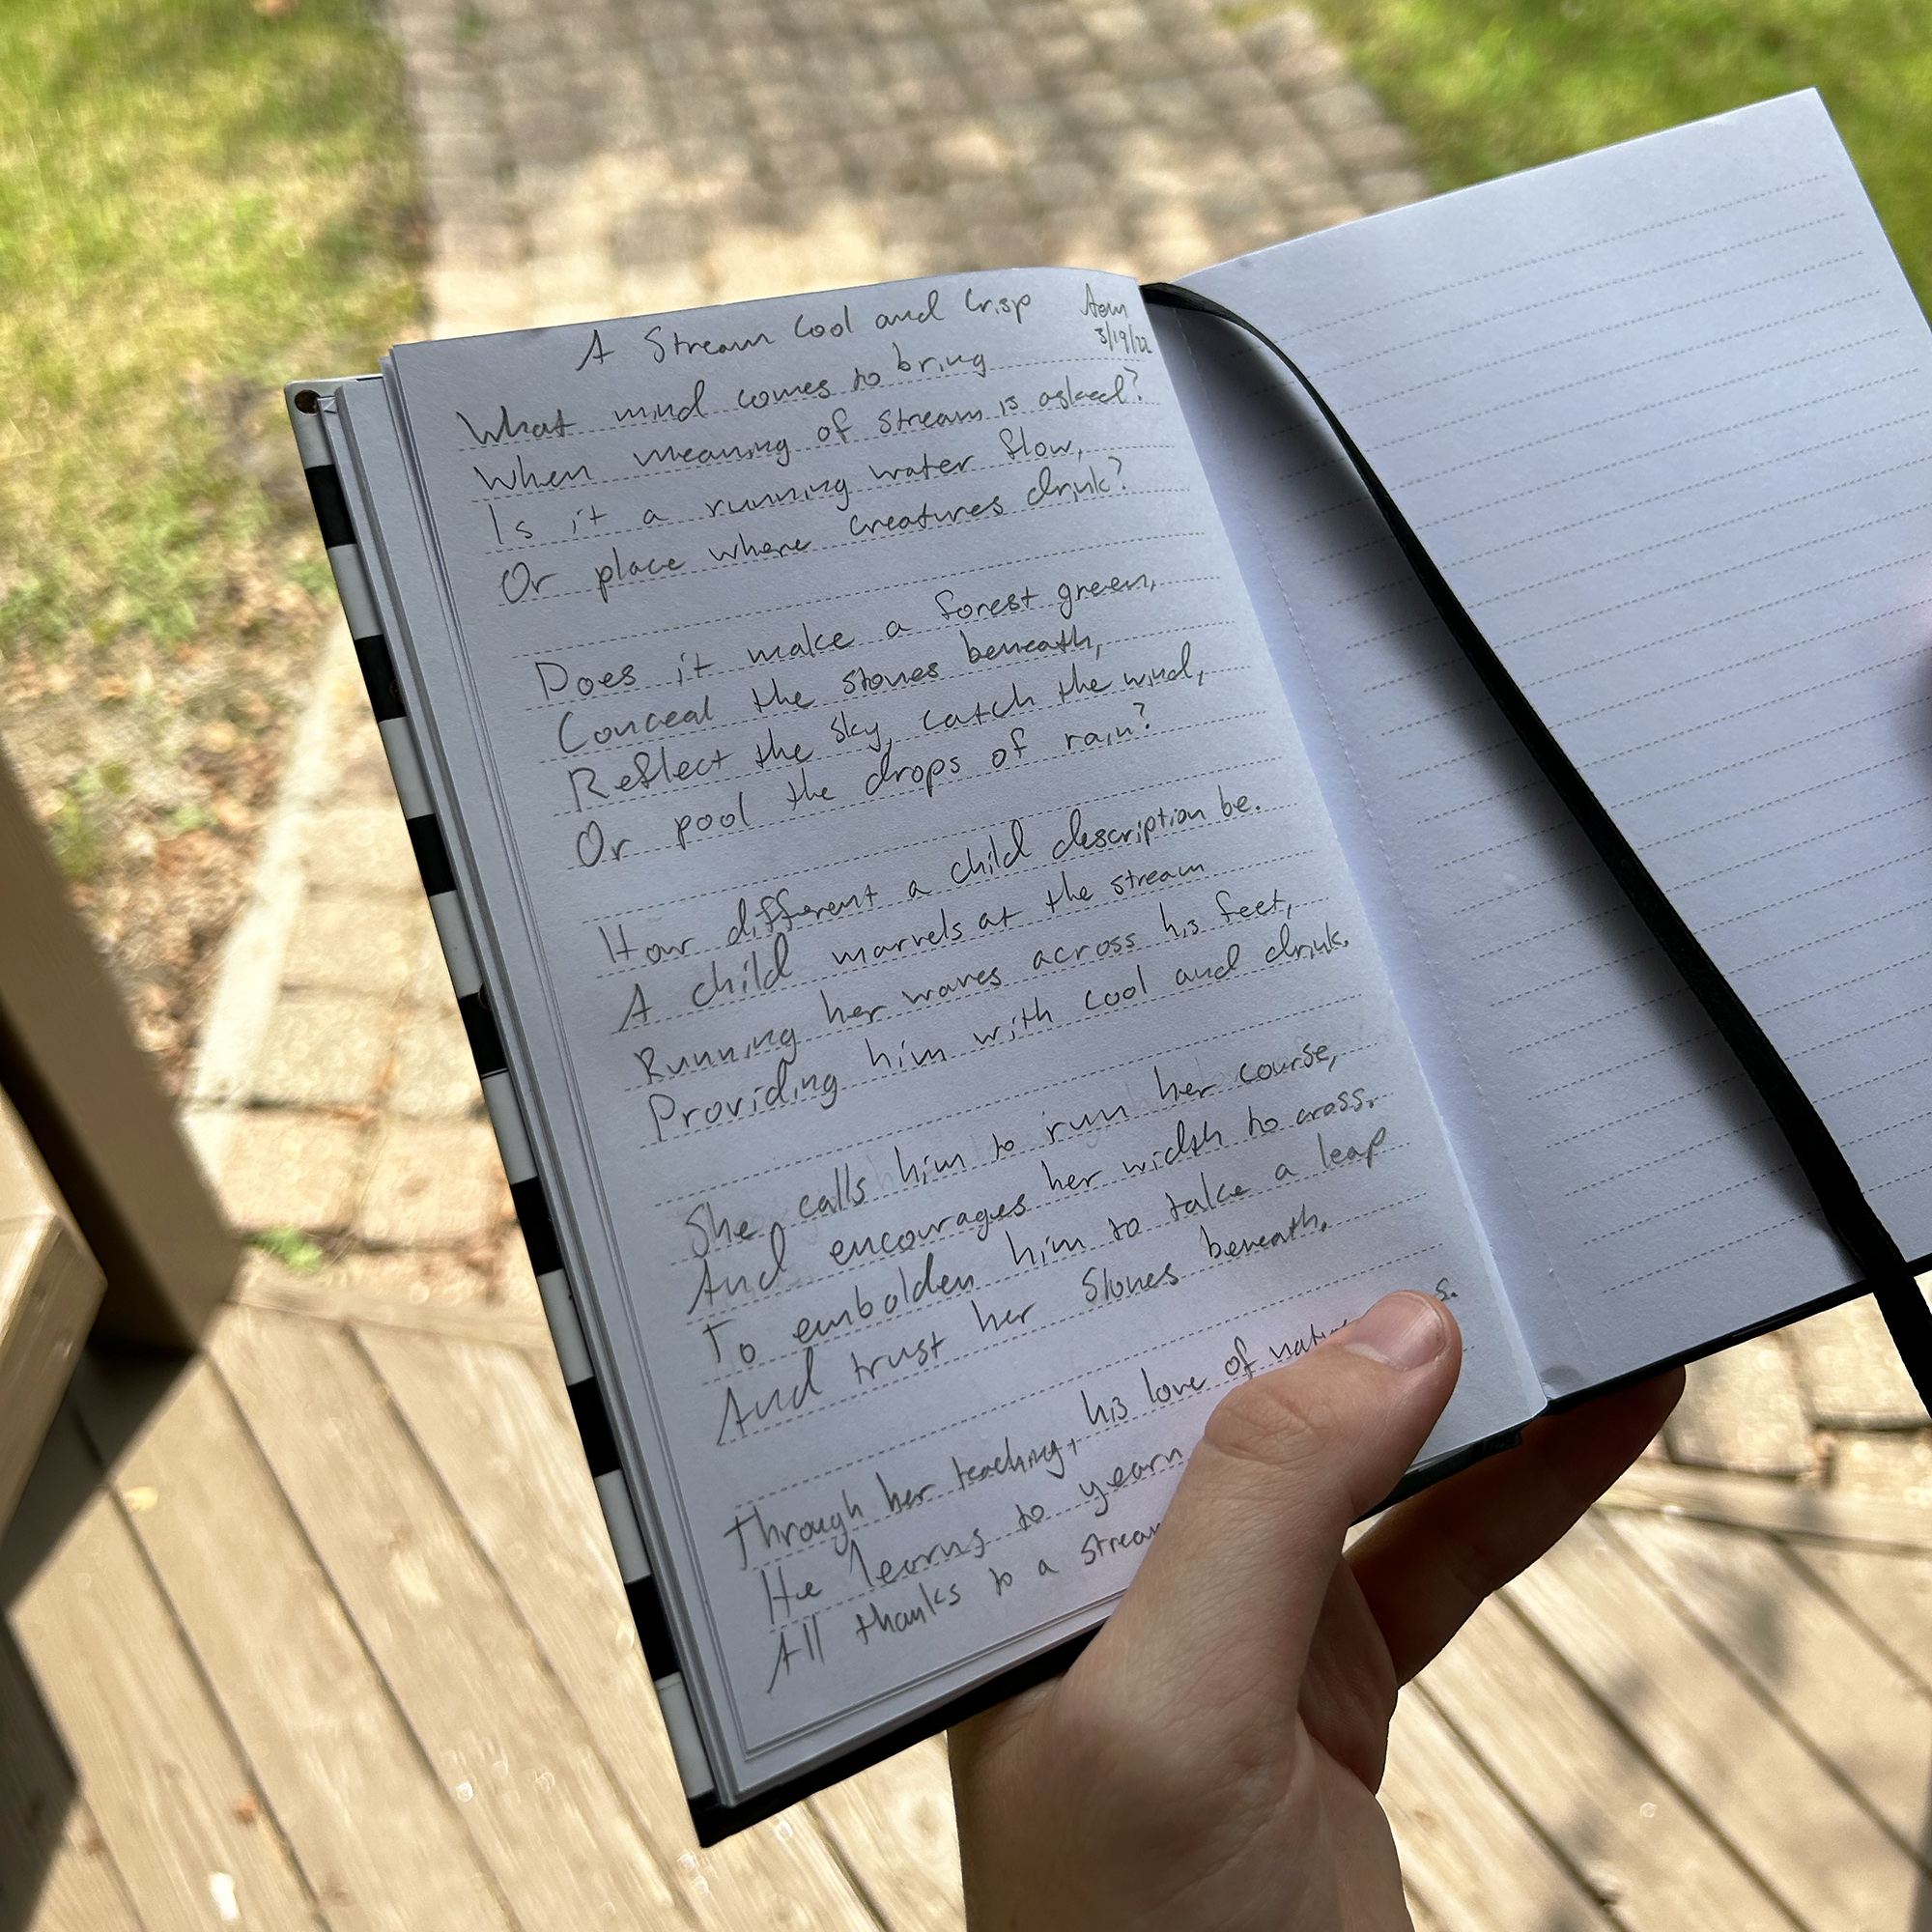 A Stream Cool and Crisp
3/19/22
What mind comes to bring
When meaning of stream is asked?
Is it a running water flow,
Or place where creatures drink?
Does it make a forest green,
Conceal the stones beneath,
Reflect the sky, catch the wind,
Or pool the drops of rain?
How different a child description be.
A child marvels at the stream
Running her waves across his feet,
Providing him with cool and drink.
She calls him to run her course,
And encourages her width to cross.
To embolden him to take a leap
And trust her stones beneath.
Through her teaching, his love of
He learns to yearn
All thanks to a